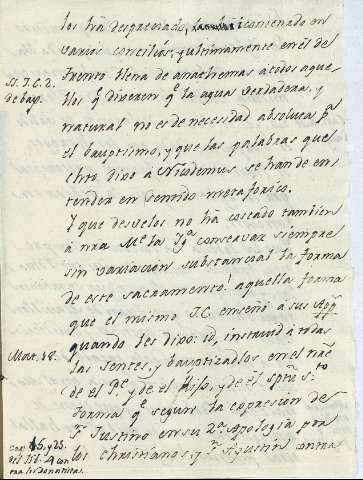 los ha despreciado, condenado en
varios concilios, y ultimamente en el de
Trento llena de anathemas à todos aque-
llos q̃ dixeren q̃ la agua verdadera, y
natural no es de necesidad absoluta pª
el bauptismo, y que las palabras que
Chrto dixo à Nicodemus se han de en-
tender en sentido metaforico.
Y que desvelos no ha costado tambien
à nra Mᵉ la Ygª conservar siempre
sin variacion substancial la forma
de este sacramento! aquella forma
que el mismo J.C. enseñó a sus App
quando les dixo: id, instruid à todas
las gentes, y bauptizadlos en el nñe
de el Pᵉ, y de el Hijo, y de el sptũ Sto
forma q̃ segun la expresion de
Sⁿ Justino en su 2ª Apologia por
los christianos, y Sⁿ Agustin contra
Ss. 7. C. 2.
de bap.
Mat. 28.
Cap. 15, y 25.
del lib. 4 con
tra los Donatistas.